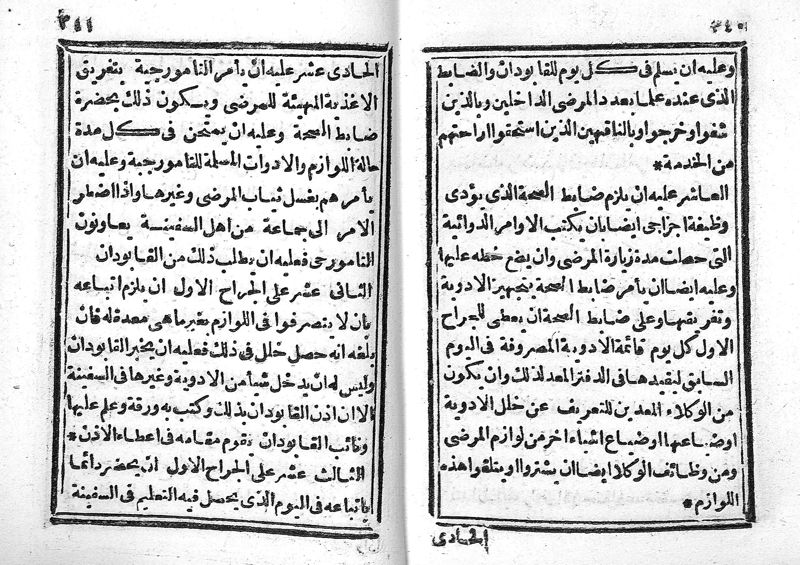 ٣٤٠
وعليه ان يسلم فى كل يوم للقابودان والضابط
الذى عنده علما بعدد المرضى الداخلين وبالذين
شفوا وخرجوا وبالناقهين الذين استحقوا راحتهم
من الخدمة *
العاشر عليه ان يلزم ضابط الصحة الذى يؤدى
وظيفة اجزاجى ايضا بان يكتب الاوامر الدوائية
التى حصلت مدة زيارة المرضى وان يضع خطه عليها
وعليه ايضا ان يأمر ضابط الصحة بتجهيز الادوية
وتفريقها وعلى ضابط الصحة ان يعطى للجراح
الاول كل يوم قائمة الادوية المصروفة فى اليوم
السابق ليقيدها فى الدفتر المعد لذلك وان يكون
من الوكلاء المعدين للتعريف عن خلل الادوية
اوضياعها اوضياع اشياء اخر من لوازم المرضى
ومن وظائف الوكلا ايضا ان يشتروا ويتلقوا هذه
اللوازم *
الحادى
٣٤١
الحادى عشر عليه ان يأمر النامورجية بتفريق
الاغذية المهيئة للمرضى ويكون ذلك بحضرة
ضابط الصحة وعليه ان يمتحن فى كل مدة
حالة اللوازم والادوات المسلمة للنامورجية وعليه ان
يأمرهم بغسل ثياب المرضى وغيرها واذا اضطر
الامر الى جماعة من اهل السفينة يعاونون
النامورجى فعليه ان يطلب ذلك من القابودان
الثانى عشر على الجراح الاول ان يلزم اتباعه
بان لا يتصرفوا فى اللوازم بغير ما هى معدة له فان
بلغه انه حصل خلل فى ذلك فعليه ان يخبر القابودان
وليس له ان يدخل شيأ من الادوية وغيرها فى السفينة
الا ان اذن القابودان بذلك وكتب به ورقة وعلم عليها
ونائب القابودان يقوم مقامه فى اعطاء الاذن *
الثالث عشر على الجراح الاول ان يحضر دائما
باتباعه فى اليوم الذى يحصل فيه التعليم فى السفينة